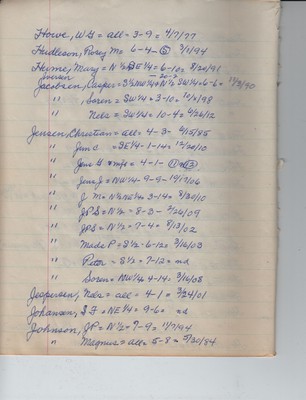 Howe, W G = all = 3-9 = 4/7/77
Hudleson, Perry M = 6-4- ⑤ 3/1/94
Hume, Mary = N½SE¼ = 6-10 = 8/20/91
Jacobsen, Casper = S½NW¼+N½ SW¼ = 6-6 = 12/3/90
" , Soren = SW¼ = 3-10 = 10/1/98
" Nels = SW¼ = 10-4 = 4/26/12
Jensen, Christian = all = 4-3- 6/15/85
" Jens C = SE¼-1-14 = 12/20/10
" Jens G = 4-1- ⑪ ⑬
" Jens J = NW¼-9-9- 10/17/06
" J M = N½NE¼ = 3-14 = 8/30/10
" JPS = N½ = 8-3- 2/26/09
" JPS = N½ = 7-4 = 8/13/02
" Mads P = S½-6-12 = 3/16/03
" Peter = S½ = 7-12 = nd
" Soren = NW¼ 4-14 = 3/16/08
Jespersen, Nels = all = 4-1 = 3/24/01
Johansen, S F = NE¼ = 9-6 = nd
Johnson, JP = N½ = 7-9 = 11/7/94
" Magnus = all = 5-8 = 5/30/84